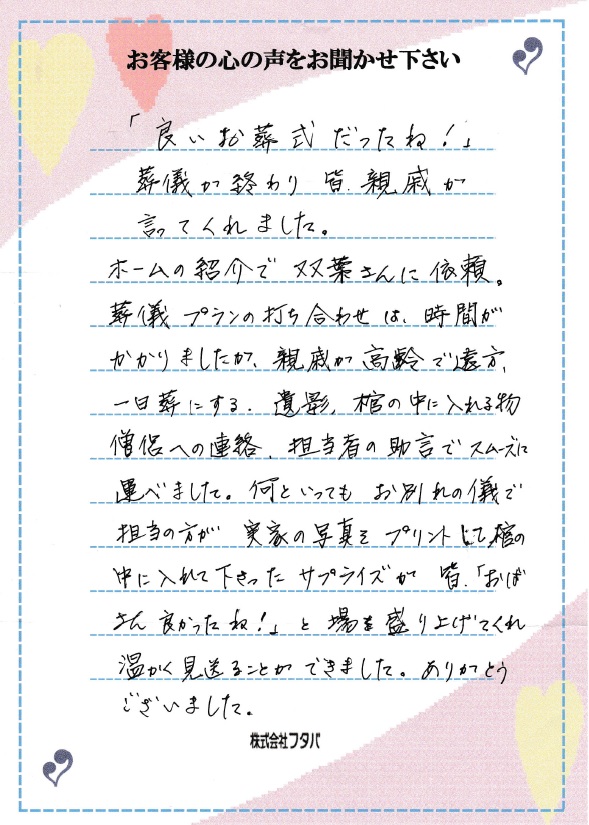 お客様の心の声をお聞かせ下さい
「良いお葬式だったね!」
葬儀が終わり 皆、親戚が
言ってくれました。
ホームの紹介で 双葉さんに依頼。
葬儀プランの打ち合わせは、時間が
かかりましたが、親戚が高齢で遠方、
一日葬にする、遺影、棺の中に入れる物
僧侶への連絡、担当者の助言でスムーズに
運べました。何といっても お別れの儀で
担当の方が 実家の写真を プリントして、棺の
中に入れて下さった サプライズが 皆、「おば
さん 良かったね!」と 場を盛り上げてくれ
温かく見送ることが できました。ありがとう
ございました。
株式会社フタバ